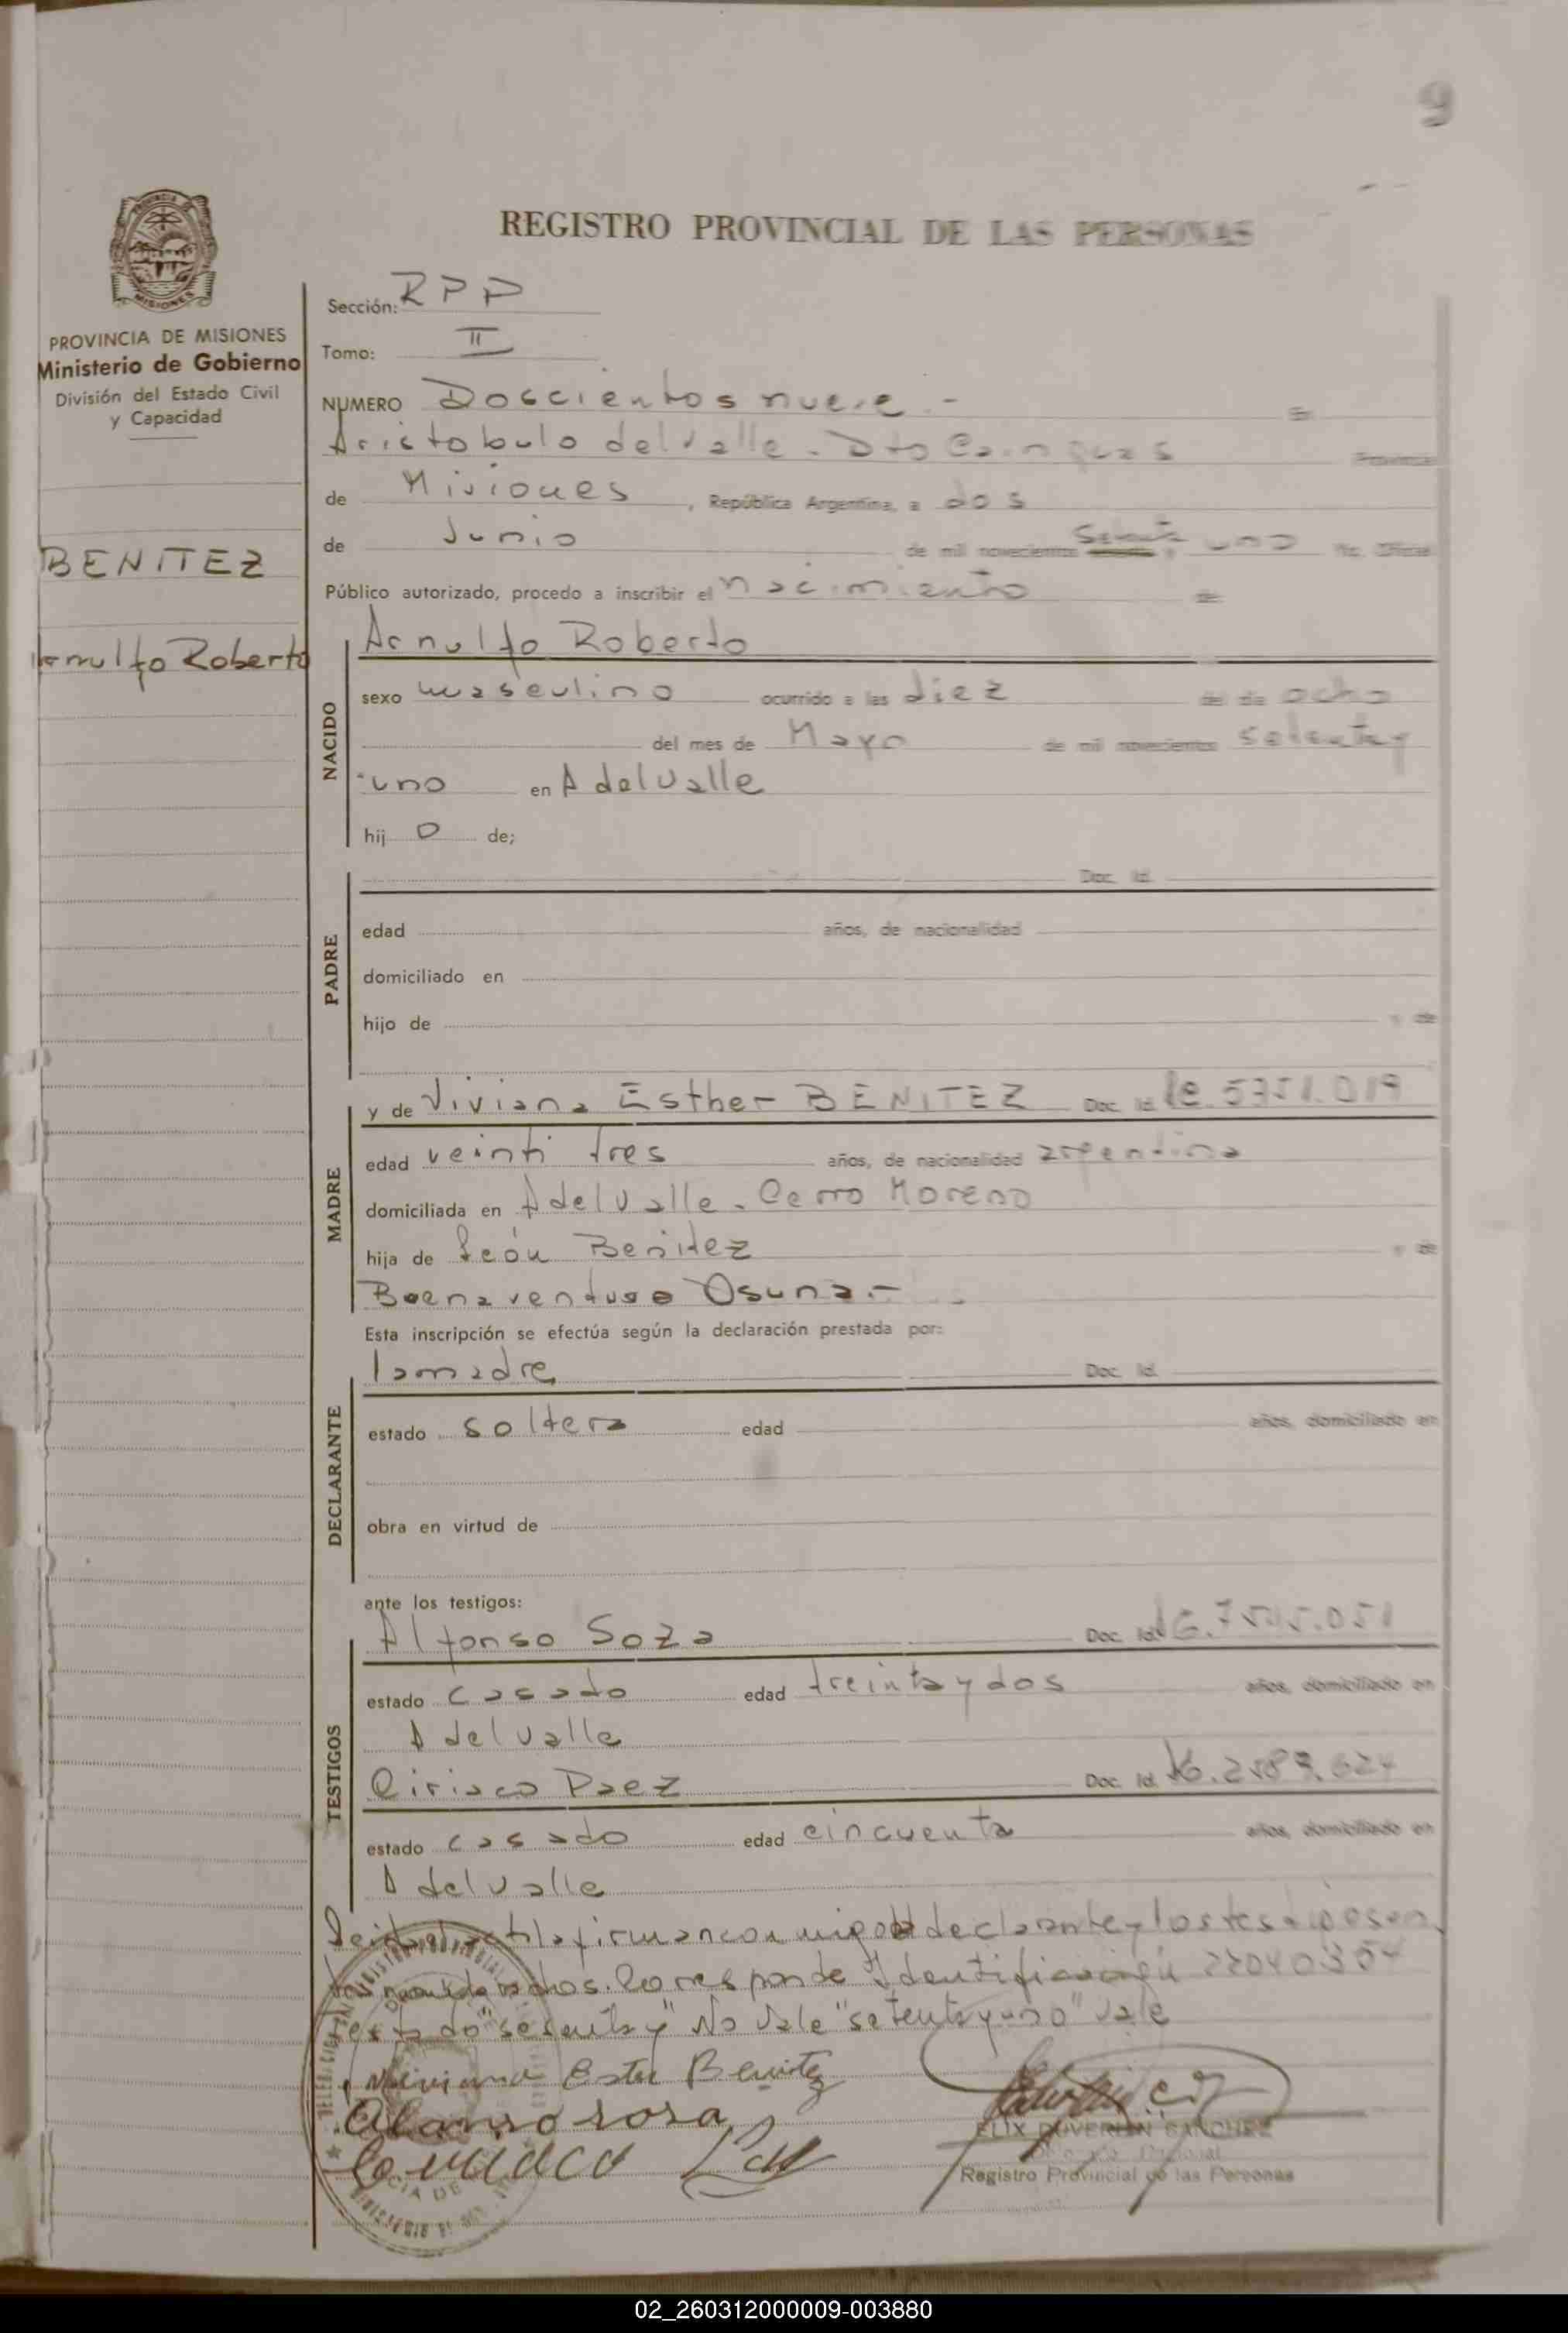 9
REGISTRO PROVINCIAL DE LAS PERSONAS
PROVINCIA DE MISIONES
Ministerio de Gobierno
División del Estado Civil
y Capacidad
BENITEZ
Arnulfo Roberto
Sección: RPP
Tomo: II
NUMERO Doscientos nueve.- En
Aristobulo del Valle - Dto Cainguas Provincia
de Misiones, República Argentina, a dos
de Junio de mil novecientos setenta y uno Yo, Oficial
Público autorizado, procedo a inscribir el nacimiento de
NACIDO
Arnulfo Roberto
sexo masculino ocurrido a las diez del día ocho
del mes de Mayo de mil novecientos setenta y
uno en A del Valle
hij o de;
PADRE
Doc. Id.
edad años, de nacionalidad
domiciliado en
hijo de y de
MADRE
y de Viviana Esther BENITEZ Doc. Id. lc. 5751.019
edad veinti tres años, de nacionalidad argentina
domiciliada en A del Valle - Cerro Moreno
hija de León Benitez y de
Buenaventura Osuna.-
Esta inscripción se efectúa según la declaración prestada por:
DECLARANTE
la madre Doc. Id.
estado soltera edad años, domiciliado en
obra en virtud de
ante los testigos:
TESTIGOS
Alfonso Soza Doc. Id.
estado casado edad treinta y dos años, domiciliado en
A del Valle
Ciriaco Paez Doc. Id.
estado casado edad cincuenta años, domiciliado en
A del Valle
firman conmigo declarante y los testigos
Corresponde Identificación 22040354
"sesenta y" No Vale "setenta y uno" vale
Viviana Ester Benitez
FELIX DUVERLIN SANCHEZ
Registro Provincial de las Personas
02_260312000009-003880